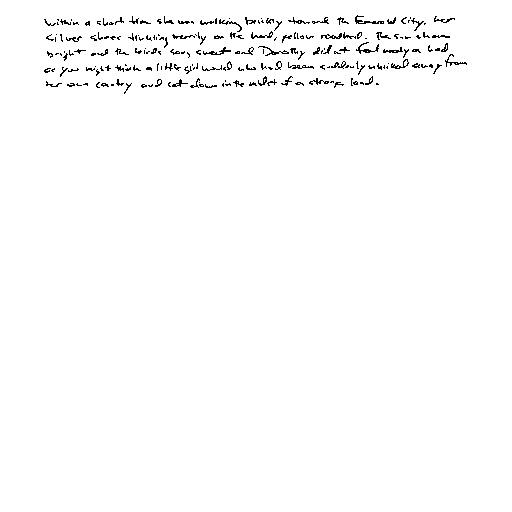 Within a short time she was walking briskly toward the Emerald City, her
silver shoes tinkling merrily on the hard, yellow roadbed. The sun shone
bright and the birds sang sweet and Dorothy did not feel nearly as bad
as you might think a little girl would who had been suddenly whisked away from
her own country and set down in the midst of a strange land.